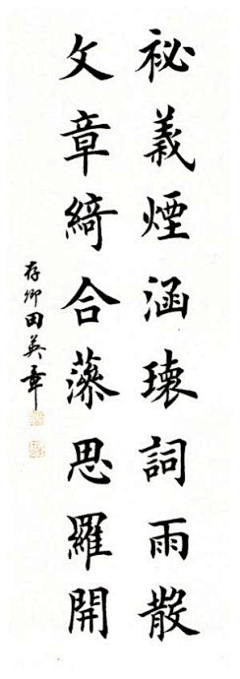 祕義煙涵瓌詞雨散
文章綺合藻思羅開
存卿田英章